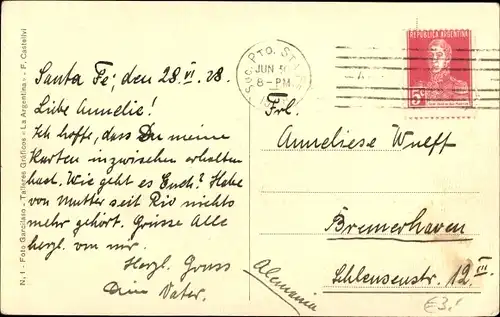 Santa Fé, den 28.VI.28.
Liebe Annelie!
Ich hoffe, dass Du meine
Karten inzwischen erhalten
hast. Wie geht es Euch? Habe
von Mutter seit Rio nichts
mehr gehört. Grüsse Alle
herzl. von mir.
Herzl. Gruss
Dein Vater.
N. 1 - Foto Garcilaso - Talleres Gráficos - La Argentina - F. Castellvi
SUC. PTO. STA. FE
JUN
8-PM
REPUBLICA ARGENTINA
5c
Frl.
Anneliese Wulff
Bremerhaven
Schleusenstr. 12 III.
Alemania
€3,-